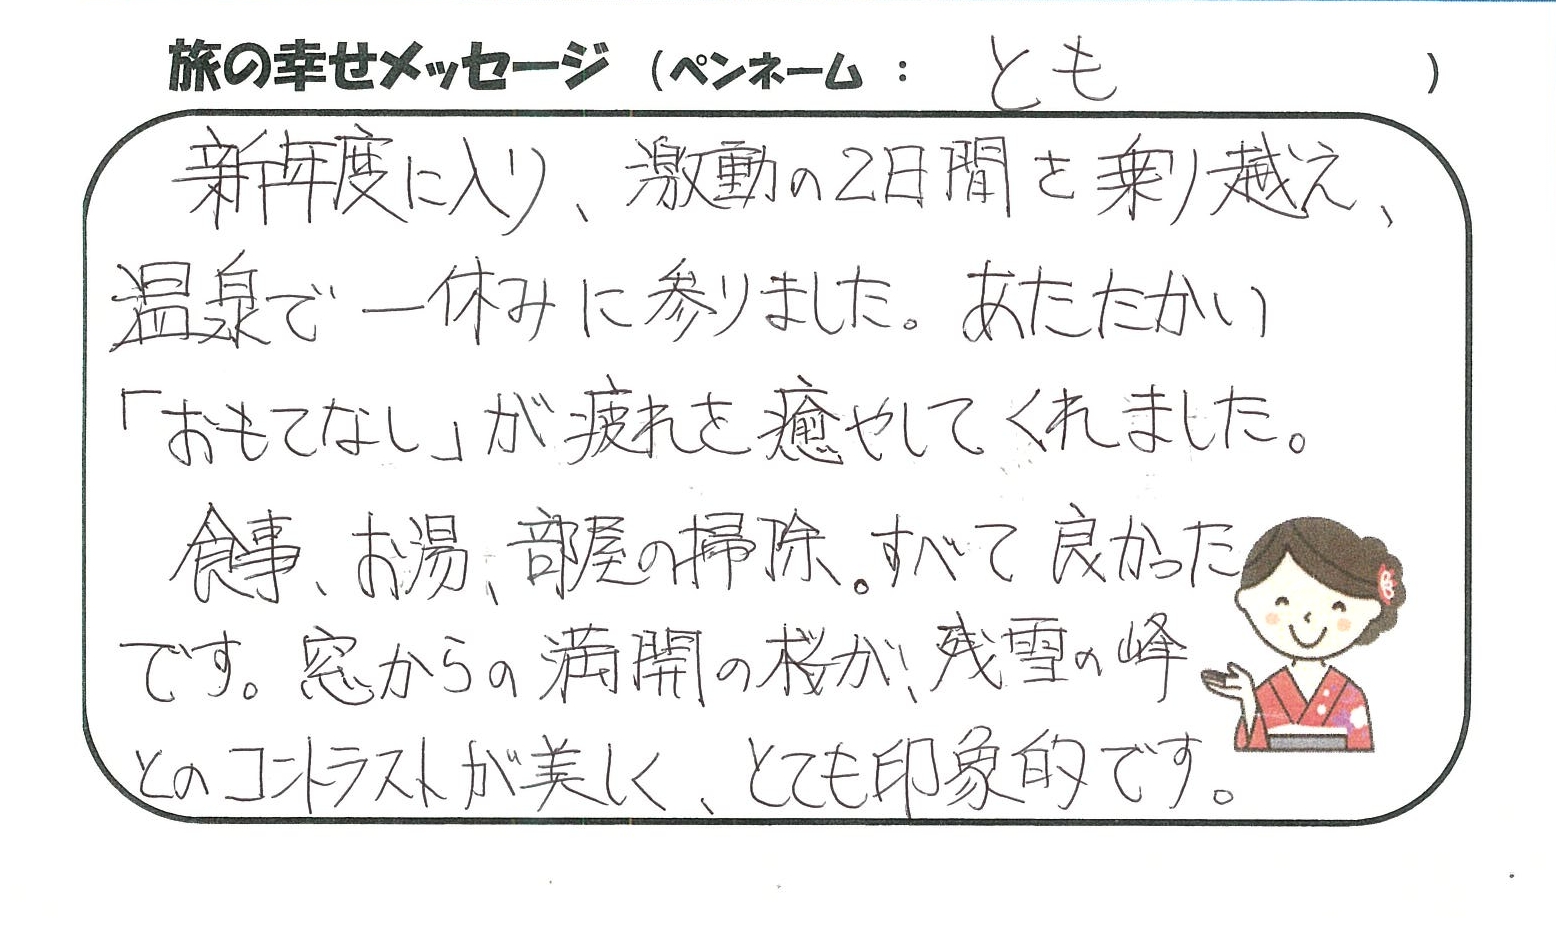 旅の幸せメッセージ（ペンネーム：とも）
新年度に入り、激動の2日間を乗り越え、
温泉で一休みに参りました。あたたかい
「おもてなし」が疲れを癒やしてくれました。
食事、お湯、部屋の掃除。すべて良かった
です。窓からの満開の桜が、残雪の峰
とのコントラストが美しく、とても印象的です。